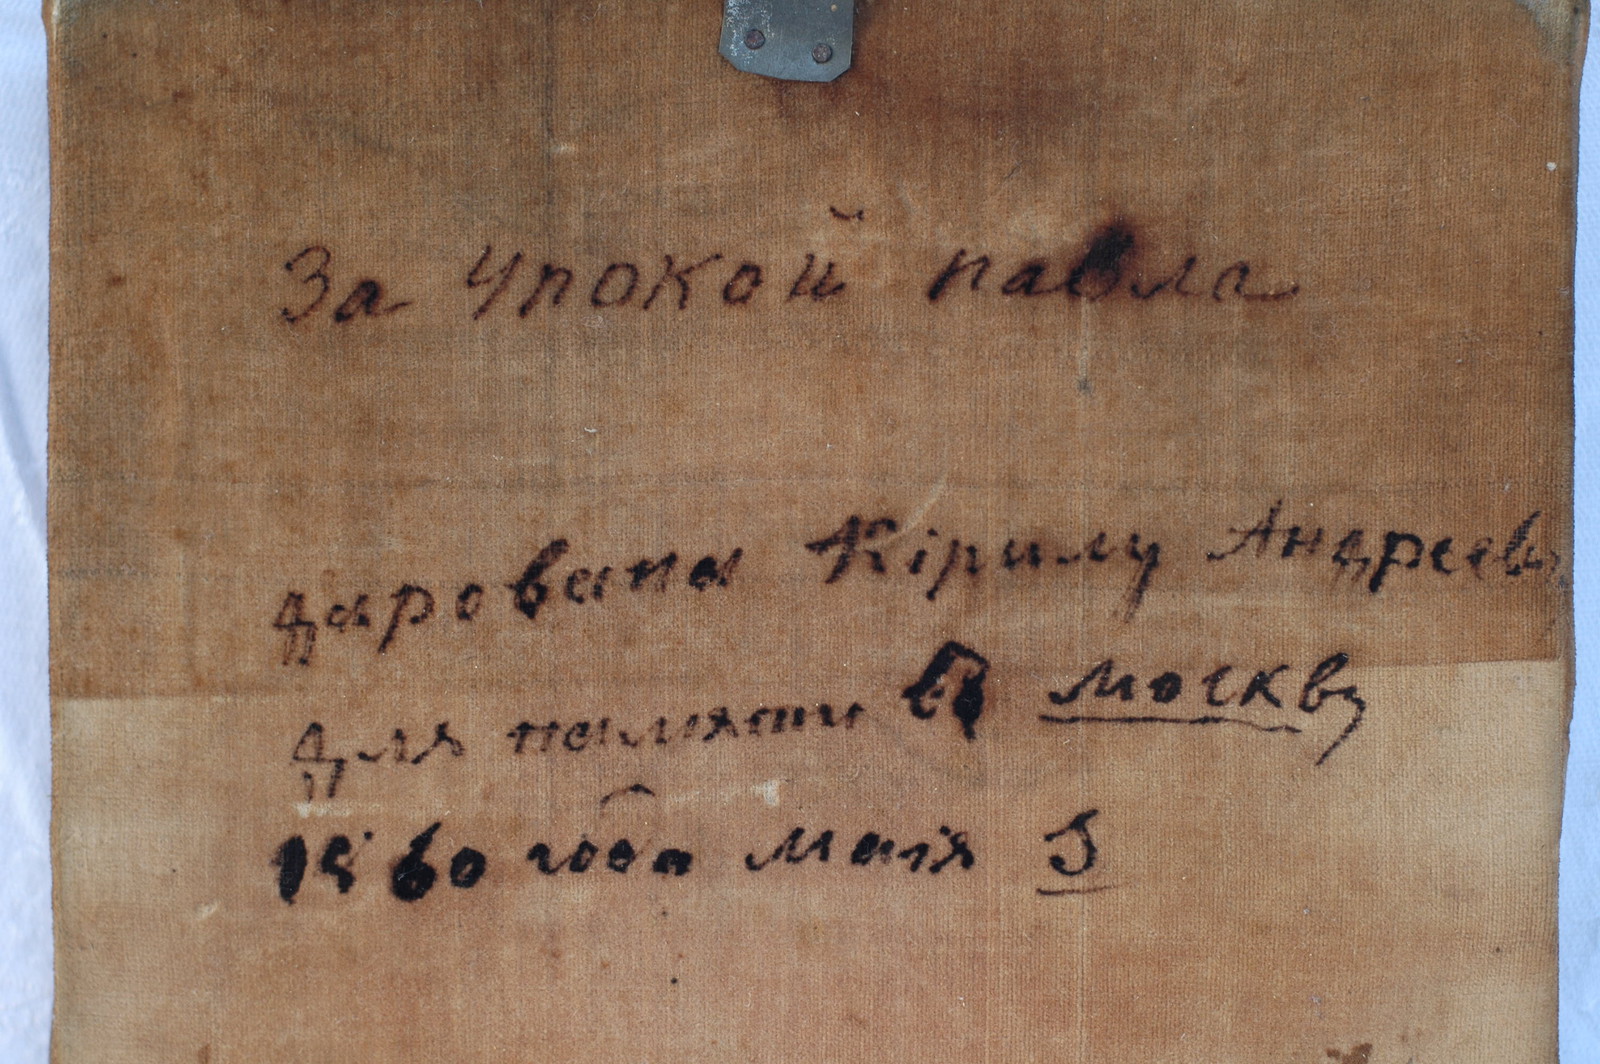 За упокой павла
дарована Кірилу Андрееву
для памяти В москву
1860 года маія 5